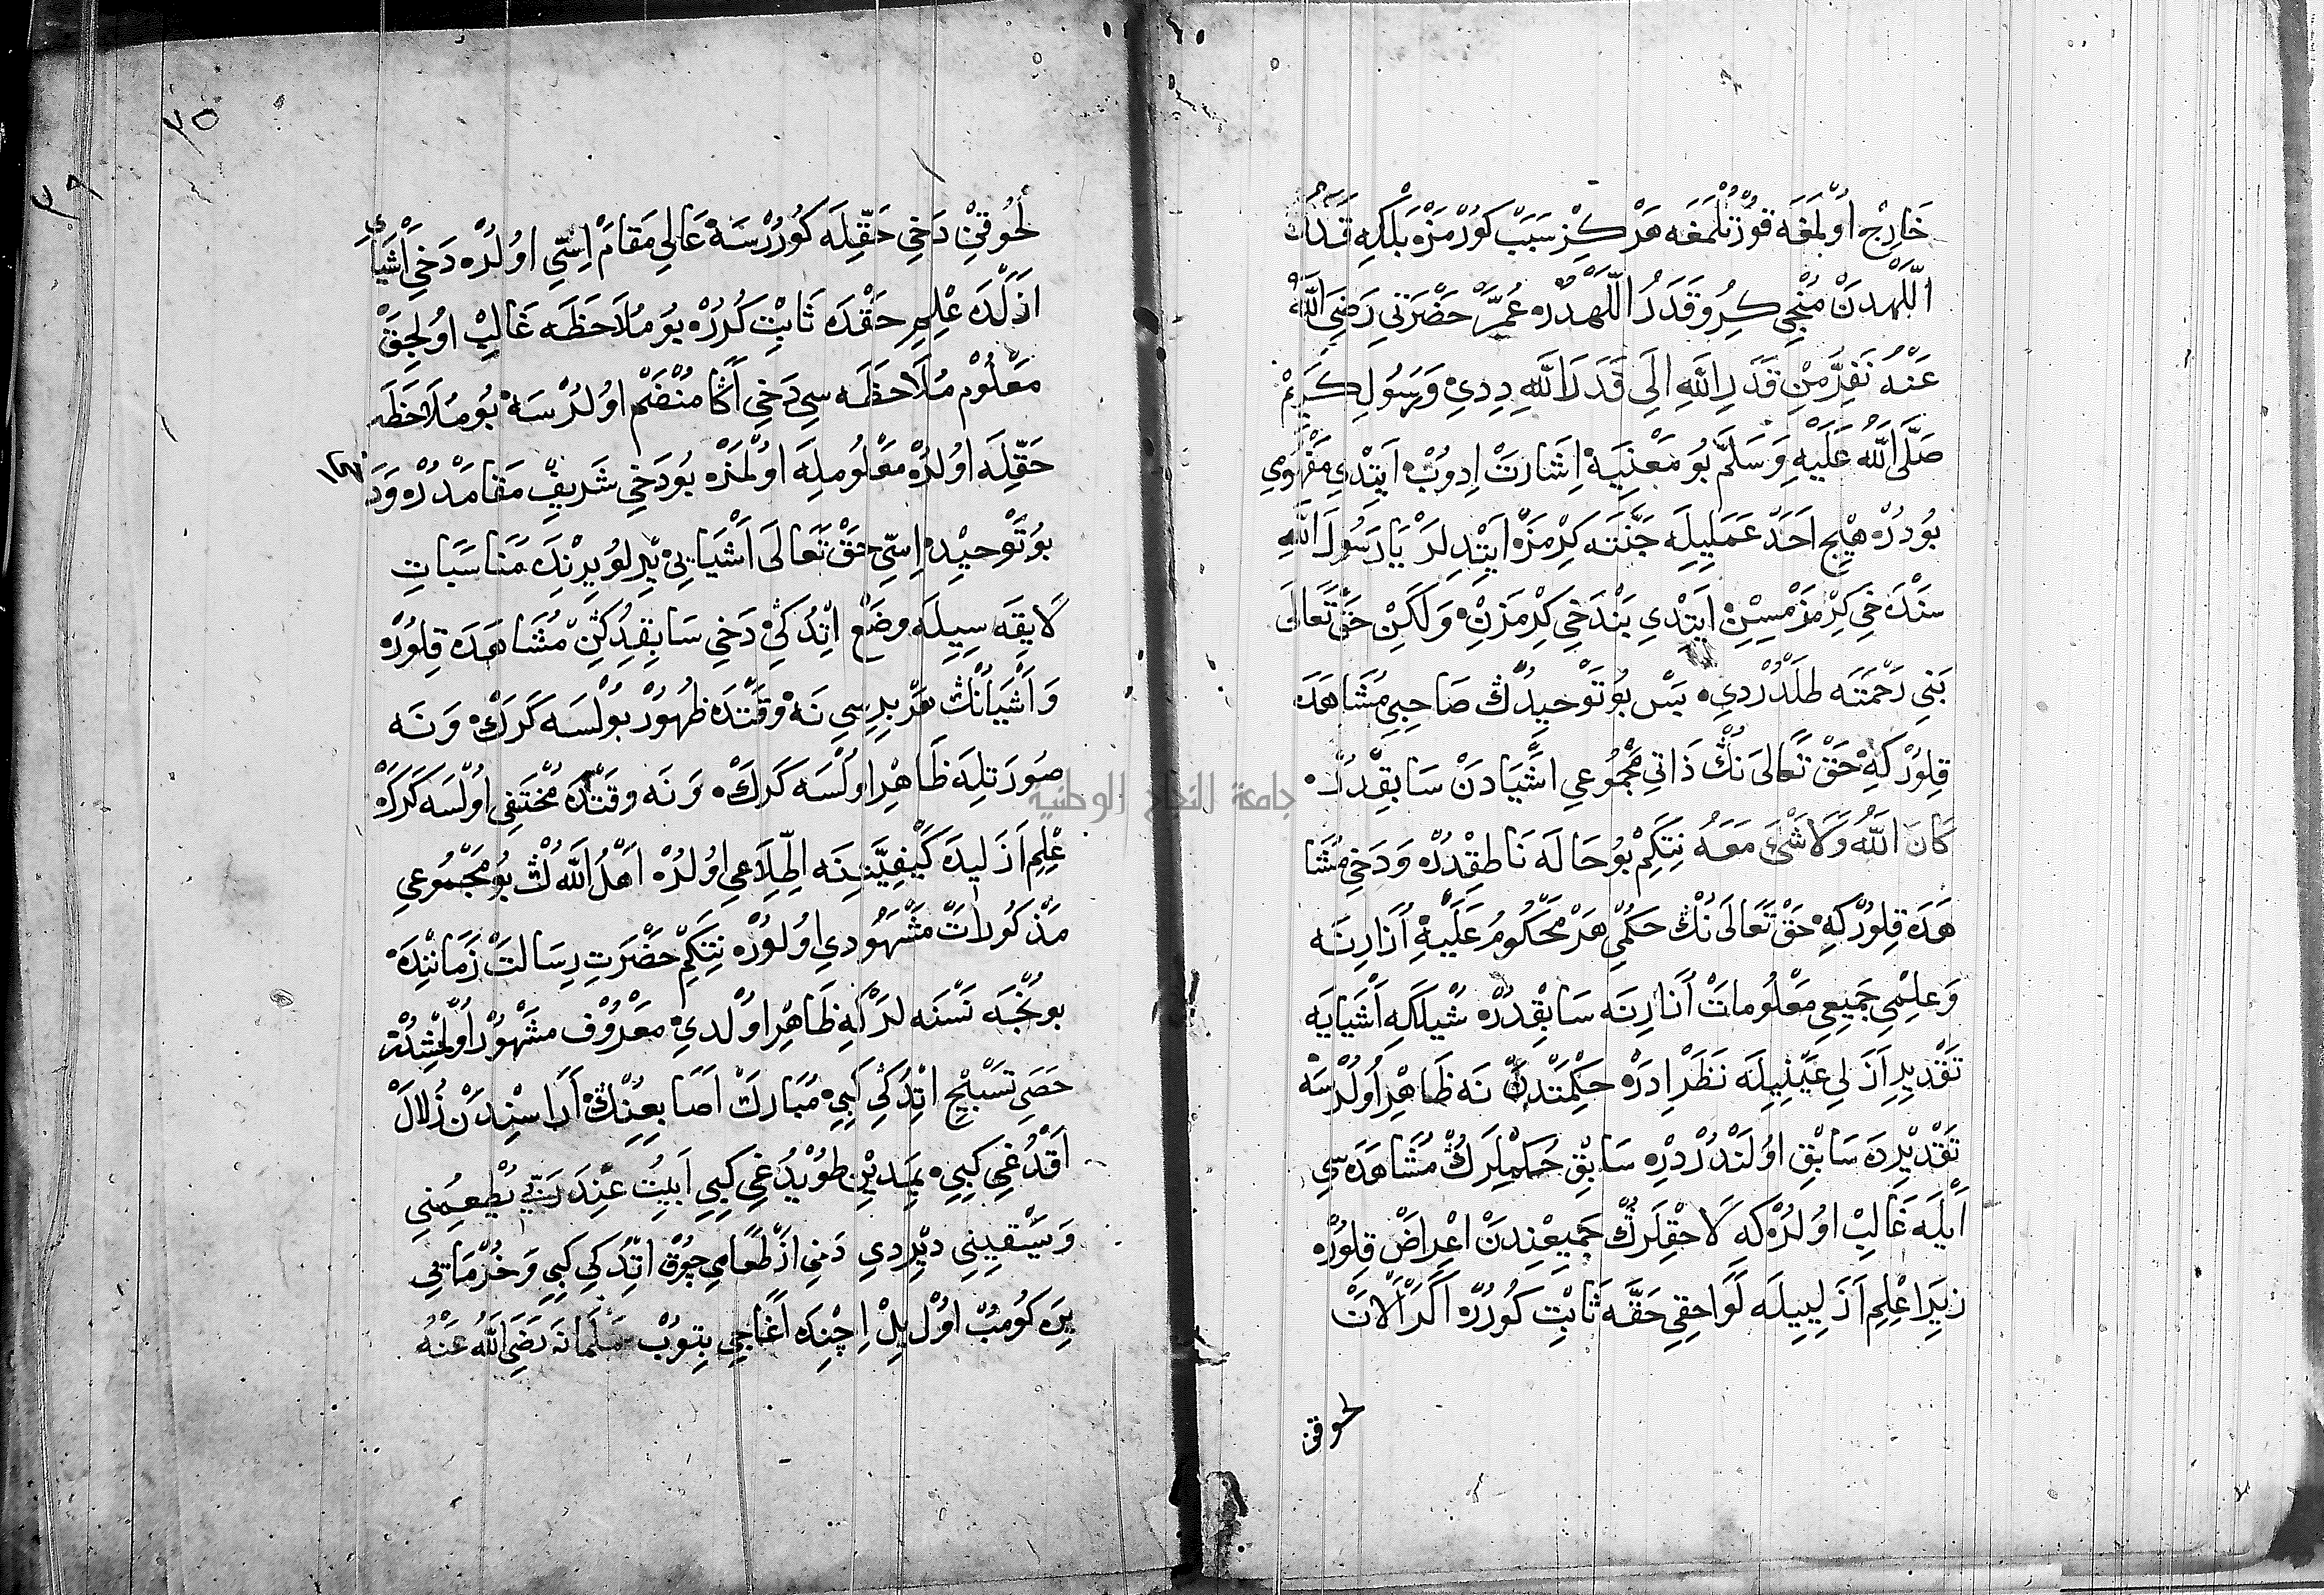 خَارِجْ اوُلْمَغَه قوُرْتُلْمَغَه هَرْكِزْ سَبَبْ كوُرْمَزْ بَلْكِه قَدَرُ
اللّٰهْدَنْ مُنْجِي كِرُو قَدَرُ اللّٰهْدُرْ عُمَرْ حَضْرَتِي رَضِيَ اللّٰهُ
عَنْهُ نَفِرُّ مِنْ قَدَرِ اللّٰهِ اِلَى قَدَرِ اللّٰهِ دِدِي وَرَسُولِ كَرِيمْ
صَلَّى اللّٰهُ عَلَيْهِ وَسَلَّمْ بُو مَعْنِيَه اِشَارَتْ اِدُوبْ اَيِتْدِي مَفْهُومِي
بُودُرْ هِيْج اَحَدْ عَمَلِيلَه جَنَّتَه كِرْمَزْ اَيِتْدِلَرْ يَا رَسُولَ اللّٰهِ
سَنْ دَخِي كِرْمَزْمِسِينْ اَيِتْدِي بَنْ دَخِي كِرْمَزِنْ وَلَكِنْ حَقْ تَعَالَى
بَنِي رَحْمَتَه طَلْدُرْدِي بَسْ بُو تَوْحِيدُكْ صَاحِبِي مُشَاهَدَه
قِلُورْكِه حَقْ تَعَالَىنُكْ ذَاتِي مَجْمُوعِي اَشْيَادَنْ سَابِقْدُرْ
كَانَ اللّٰهُ وَلَا شَيْءَ مَعَهُ نِتَكِمْ بُو حَالَه نَاطِقْدُرْ وَدَخِي مُشَا
هَدَه قِلُورْكِه حَقْ تَعَالَىنُكْ حُكْمِي هَرْ مَحْكُومُ عَلَيْهِ اُزَارِنَه
وَعِلْمِي جَمِيعِ مَعْلُومَاتْ اُزَارِنَه سَابِقْدُرْ شُيْلَكِه اَشْيَايَه
تَقْدِيرِ اَزَلِي عَيْنِيلَه نَظَرْ اِدَرْ حِكْمَتْدَنْ نَه ظَاهِرْ اوُلُرْسَه
تَقْدِيرْدَه سَابِقْ اوُلَنْدُرْدِرْ سَابِقْ حُكْمْلَرُكْ مُشَاهَدَه سِي
اَيْلَه غَالِبْ اوُلُرْكِه لَاحِقْلَرُكْ جَمِيعِنْدَنْ اِعْرَاضْ قِلُورْ
زِيرَا عِلْمِ اَزَلِيِيلَه لَوَاحِقِي حَقَّه ثَابِتْ كُورُرْ اَكَرْ اٰلَاتْ
لحوقن
٣٥
٣٩
لُحُوقِنْ دَخِي حَقِّلَه كُورُرْسَه عَالِي مَقَامْ اِسِّي اوُلُرْ دَخِي اَشْيَايِ
اَزَلْدَه عِلْمِ حَقْدَه ثَابِتْ كُرُرْ بُو مُلَاحَظَه غَالِبْ اوُلِجَقْ
مَعْلُومْ مُلَاحَظَه سِي دَخِي اَكَا مُنْضَمْ اوُلُرْسَه بُو مُلَاحَظَه
حَقِّلَه اوُلُرْ مَعْلُومِلَه اوُلْمَزْ بُو دَخِي شَرِيفْ مَقَامْدُرْ وَدَخِي
بُو تَوْحِيدْ اِسِّي حَقْ تَعَالَى اَشْيَايِي يِرْلُو يِرِنْدَه مُنَاسَبَاتِ
لَايِقَه سِيِيلَه وَضْعْ اِتْدُكِنْ دَخِي سَابِقِدُكِنْ مُشَاهَدَه قِلُورْ
وَاَشْيَانُكْ هَرْ بِرِسِي نَه وَقْتْدَه ظُهُورْ بُولْسَه كَرَكْ وَنَه
صُورَتِلَه ظَاهِرْ اوُلْسَه كَرَكْ وَنَه وَقْتْدَه مُخْتَفِي اوُلْسَه كَرَكْ
عِلْمِ اَزَلِيدَه كَيْفِيَّتِنَه اِطِّلَاعِي اوُلُرْ اَهْلُ اللّٰهُكْ بُو مَجْمُوعِي
مَذْكُورَاتْ مَشْهُودِي اوُلُورْ نِتَكِمْ حَضْرَتِ رِسَالَتْ زَمَانِنْدَه
بُونْجَه نَسْنَه لَرْكِه ظَاهِرْ اوُلْدِي مَعْرُوفْ مَشْهُورْ اوُلْمِشْدُرْ
حَصَى تَسْبِيحْ اِتْدُكِي كِبِي مُبَارَكْ اَصَابِعِنُكْ اَرَاسِنْدَنْ زُلَالْ
اَقْدُغِي كِبِي يَمَدِينْ طُويْدُغِي كِبِي اَبِيتُ عِنْدَ رَبِّي يُطْعِمُنِي
وَيَسْقِينِي دِيرْدِي دَخِي اَزْ طَعَامِي چُوقْ اِتْدُكِي كِبِي وَخُرْمَايِي
يِرَه كُومُبْ اوُلْ يِلْ اِچِنْدَه اَغَاجِي بِتُوبْ سَلْمَانَه رَضِيَ اللّٰهُ عَنْهُ
جامعة النجاح الوطنية